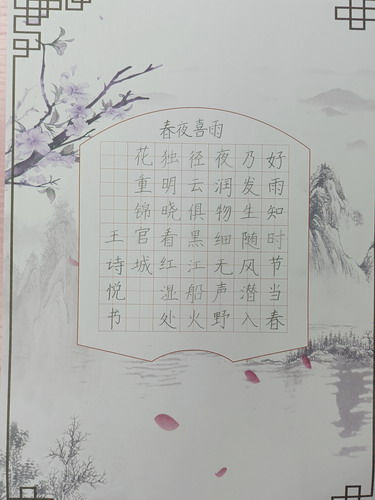 春夜喜雨
好雨知时节当春
乃发生随风潜入
夜润物细无声野
径云俱黑江船火
独明晓看红湿处
花重锦官城
王诗悦书